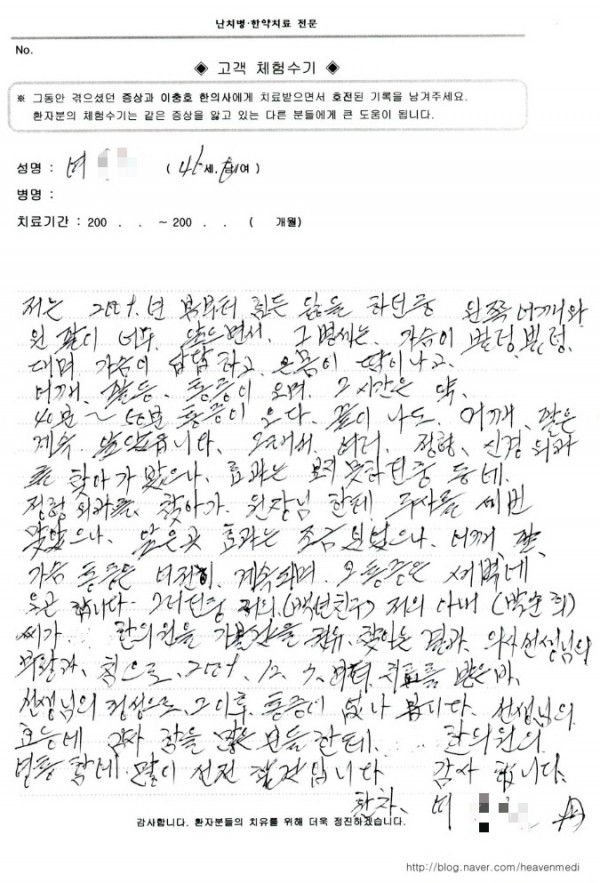 난치병·한약치료 전문
No.
◈ 고객 체험수기 ◈
※ 그동안 겪으셨던 증상과 이충호 한의사에게 치료받으면서 호전된 기록을 남겨주세요.
환자분의 체험수기는 같은 증상을 앓고 있는 다른 분들에게 큰 도움이 됩니다.
성명 : 여 ( 세, 남/여 )
병명 :
치료기간 : 200 . . ~ 200 . . ( 개월)
저는 2009.년 봄부터 힘든 일을 하던중 왼쪽 어깨와
왼 팔이 너무. 아프면서. 그 병세는. 가슴이 벌렁 벌렁.
대며. 가슴이 답답하고. 온몸이 땀이 나고.
어깨. 팔등. 통증이 오며. 그 시간은 약.
40분 ~ 50분 통증이 오다. 끝이 나도. 어깨. 팔은
계속 그래서 여러. 정형. 신경 외과
를 찾아가 봤으나. 효과는 보지 못하던중 동네.
정형외과를. 찾아가. 원장님 한테. 주사를 세번
맞았으나. 맞은곳 효과는 조금 있었으나. 어깨. 팔.
가슴 통증은 여전히. 계속되며. 그 통증은 새벽에
합니다. 그러던중 저의 (백년친구) 저의 아내 (박순희)
씨가 한의원을 가볼것을 권유. 찾아온 결과. 의사선생님의
침으로. 2009. 12. 7. 부터. 치료를 받은바.
선생님의 정성으로. 그 이후. 통증이 없나 봅니다. 선생님의
효능에 많은 분들한테. 한의원의
많이 선전 할것입니다 감사 합니다.
환자. 여
감사합니다. 환자분들의 치유를 위해 더욱 정진하겠습니다.
http://blog.naver.com/heavenmedi